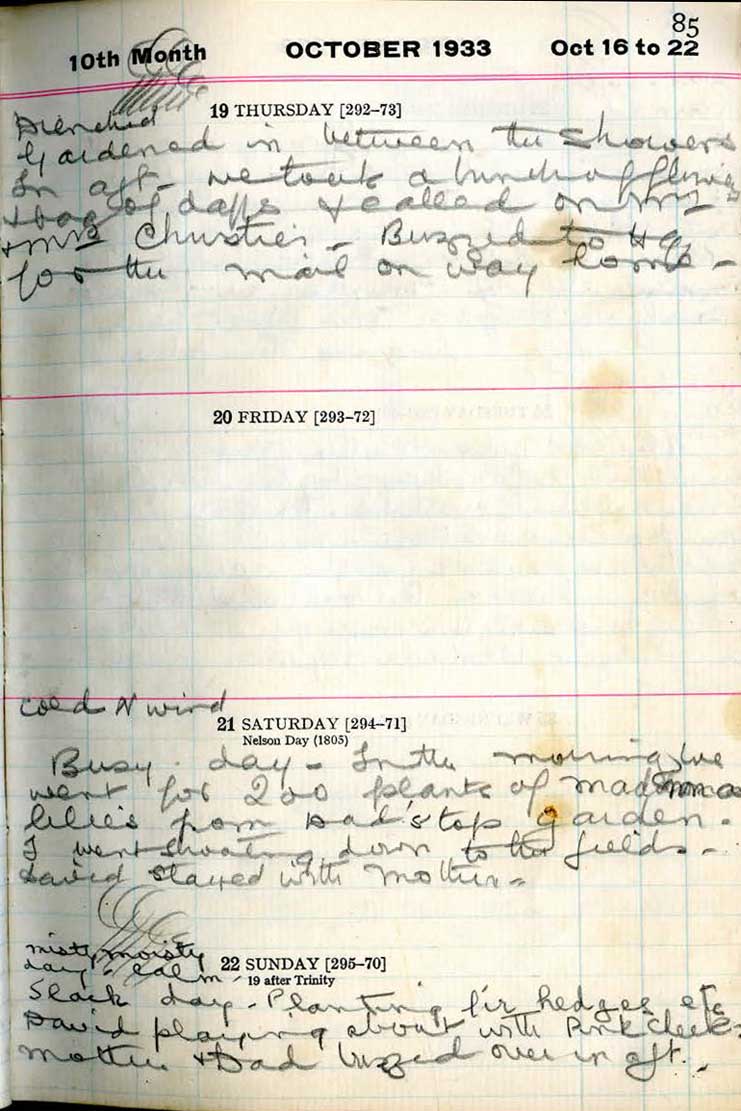 85
10th Month OCTOBER 1933 Oct 16 to 22
19 THURSDAY [292–73]
Drenched
Gardened in between the showers
In aft - we took a bunch of flowers
& bag of daffs & called on Mr
& Mrs Christies - Buzzed to Hq
for the mail on way home -
20 FRIDAY [293–72]
cold N wind
21 SATURDAY [294–71]
Nelson Day (1805)
Busy day - In the morning we
went for 200 plants of madonna
lilies from Dad's top garden.
I went shooting down to the fields -
David stayed with Mother -
misty moisty
day - calm -
22 SUNDAY [295–70]
19 after Trinity
Slack day - Planting fir hedges etc
David playing about with Pink cheeks
Mother & Dad buzzed over in aft.